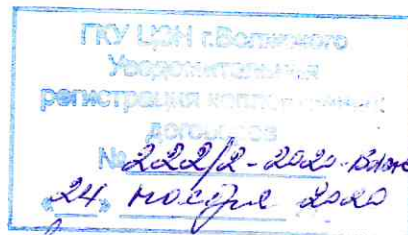 ГКУ ЦЗН г.Волжского
Уведомительная
регистрация коллективных
договоров
№ 222/2-2020-Волж
"24" ноября 2020